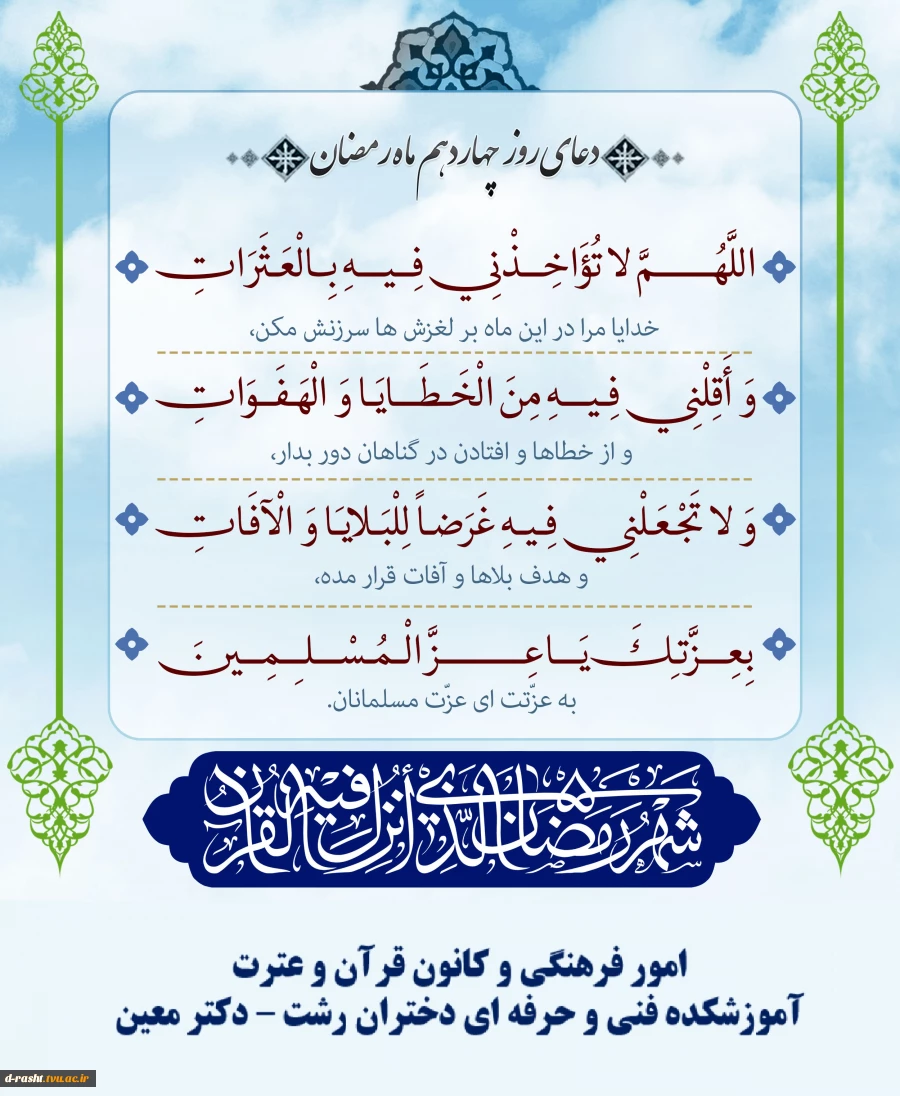 دعای روز چهاردهم ماه رمضان
اللَّهُمَّ لا تُؤَاخِذْنِي فِيهِ بِالْعَثَرَاتِ
خدایا مرا در این ماه بر لغزش ها سرزنش مکن،
وَ أَقِلْنِي فِيهِ مِنَ الْخَطَايَا وَ الْهَفَوَاتِ
و از خطاها و افتادن در گناهان دور بدار،
وَ لا تَجْعَلْنِي فِيهِ غَرَضاً لِلْبَلايَا وَ الْآفَاتِ
و هدف بلاها و آفات قرار مده،
بِعِزَّتِكَ يَا عِزَّ الْمُسْلِمِينَ
به عزّتت ای عزّت مسلمانان.
شهر رمضان الذی أنزل فیه القرآن
امور فرهنگی و کانون قرآن و عترت
آموزشکده فنی و حرفه ای دختران رشت - دکتر معین
d-rasht.tvu.ac.ir